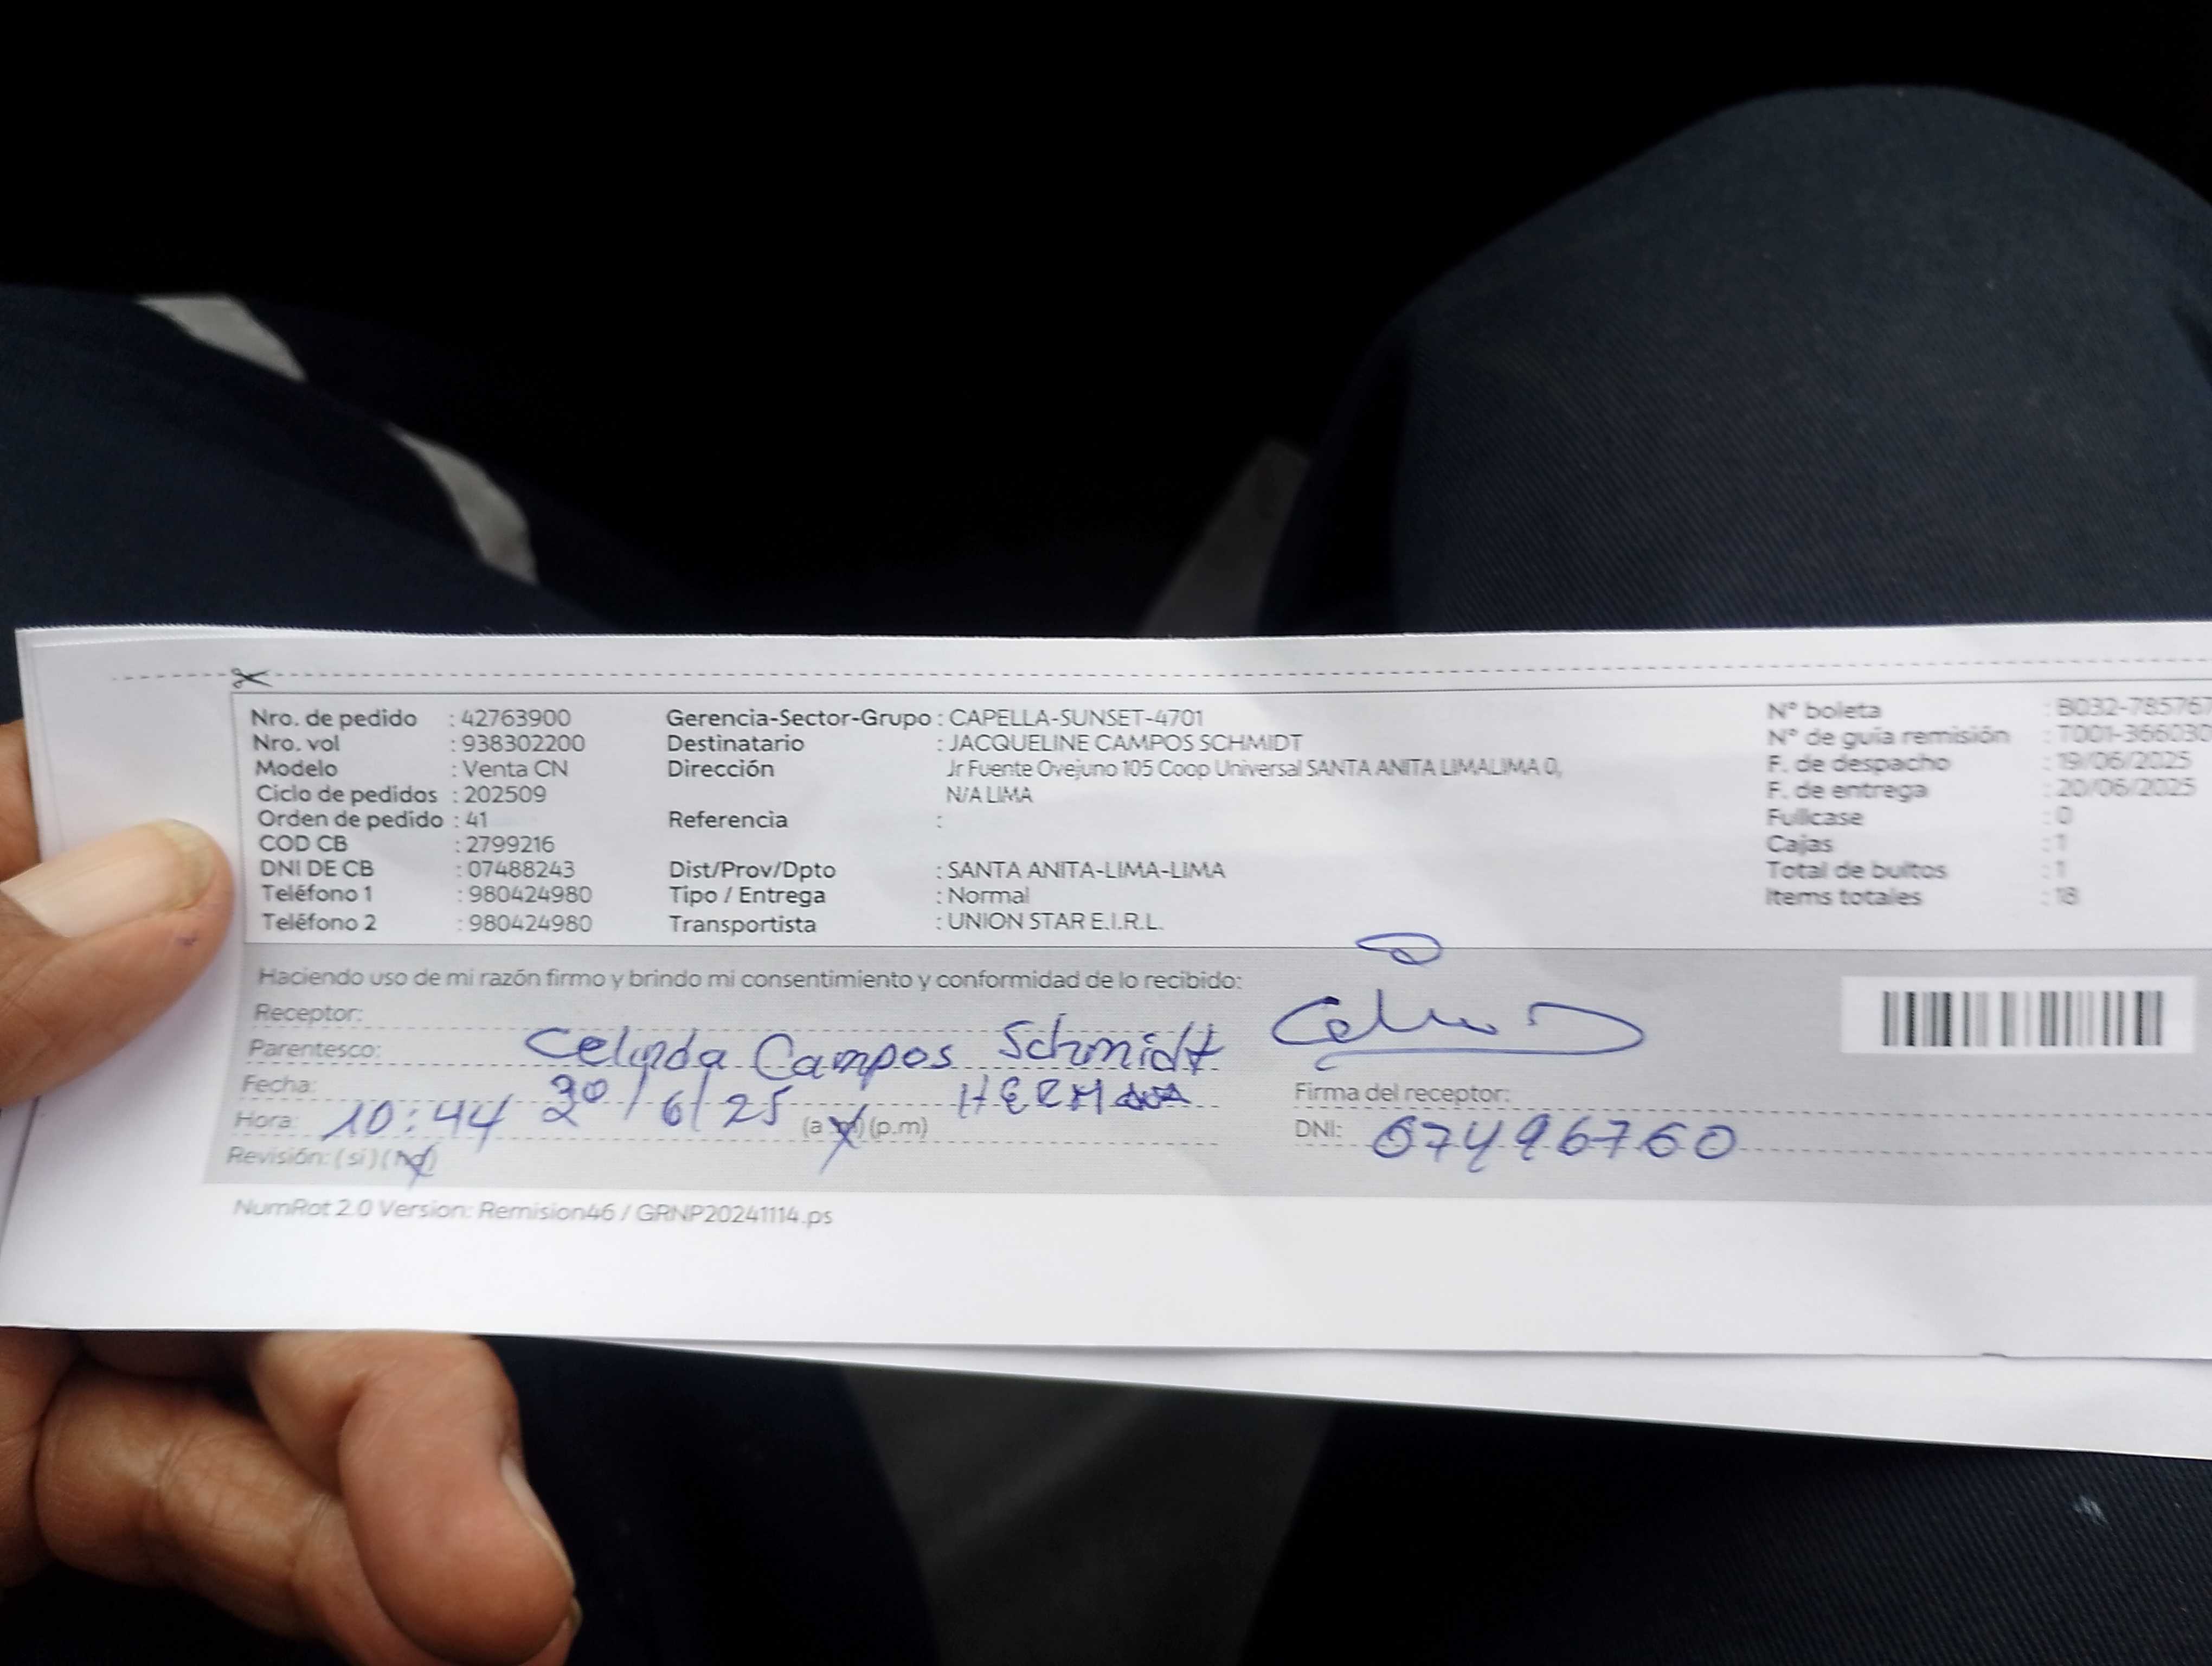 Nro. de pedido : 42763900 Gerencia-Sector-Grupo : CAPELLA-SUNSET-4701 N° boleta : B032-785767
Nro. vol : 938302200 Destinatario : JACQUELINE CAMPOS SCHMIDT N° de guía remisión : T001-366030
Modelo : Venta CN Dirección Jr Fuente Ovejuno 105 Coop Universal SANTA ANITA LIMALIMA 0, F. de despacho : 19/06/2025
Ciclo de pedidos : 202509 N/A LIMA F. de entrega : 20/06/2025
Orden de pedido : 41 Referencia : Fullcase : 0
COD CB : 2799216 Cajas : 1
DNI DE CB : 07488243 Dist/Prov/Dpto : SANTA ANITA-LIMA-LIMA Total de bultos : 1
Teléfono 1 : 980424980 Tipo / Entrega : Normal Items totales : 18
Teléfono 2 : 980424980 Transportista : UNION STAR E.I.R.L.
Haciendo uso de mi razón firmo y brindo mi consentimiento y conformidad de lo recibido:
Receptor:
Parentesco: Celinda Campos Schmidt
Fecha: 20/6/25 HERMANA Firma del receptor:
Hora: 10:44 (a.m) (p.m) DNI:
Revisión: (si) (no)
NumRot 2.0 Version: Remision46 / GRNP20241114.ps